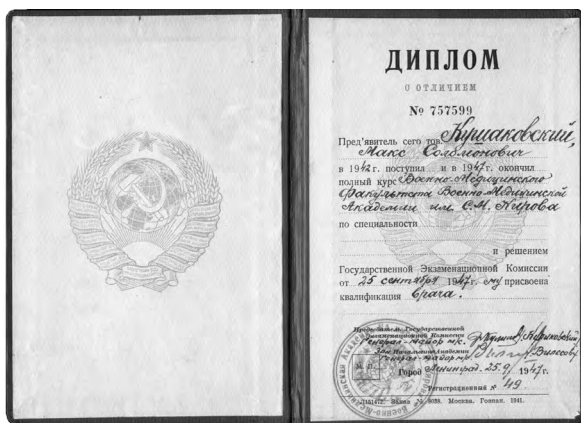 ДИПЛОМ
С ОТЛИЧИЕМ
№ 757599
Пред'явитель сего тов. Кушаковский,
Макс Соломонович
в 1942 г. поступил и в 1947 г. окончил
полный курс Военно-Медицинского
Факультета Военно-Медицинской
Академии им. С.М. Кирова
по специальности
и решением
Государственной Экзаменационной Комиссии
от 25 сентября 1947 г. ему присвоена
квалификация врача.
Председатель Государственной
Экзаменационной Комиссии
Генерал-майор м/с.
Зам. Начальника Академии
Генерал-майор м/с.
Город Ленинград. 25.9. 1947 г.
Регистрационный № 49
Заказ № 5038. Москва. Гознак. 1941.